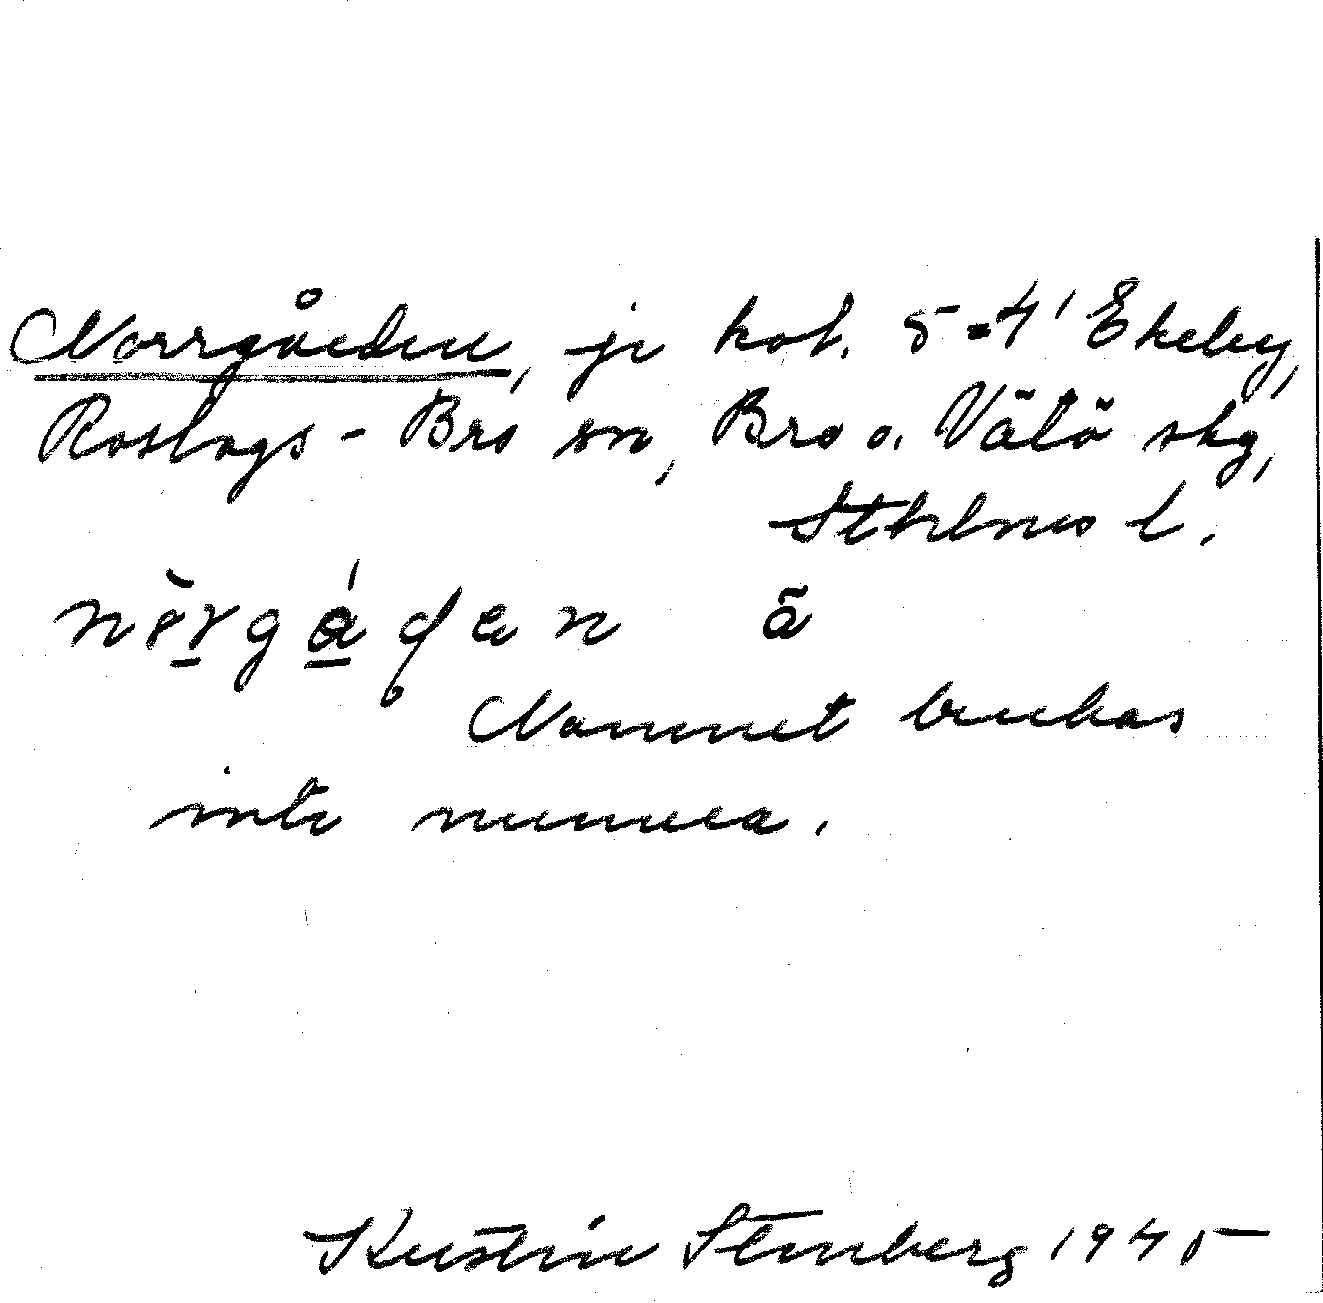 Norrgården, jr kot. 5=4' Ekeby,
Roslags-Bro sn, Bro o. Vätö skg,
Sthlms l.
Namnet brukas
inte numera.
Kerstin Stenberg 1945